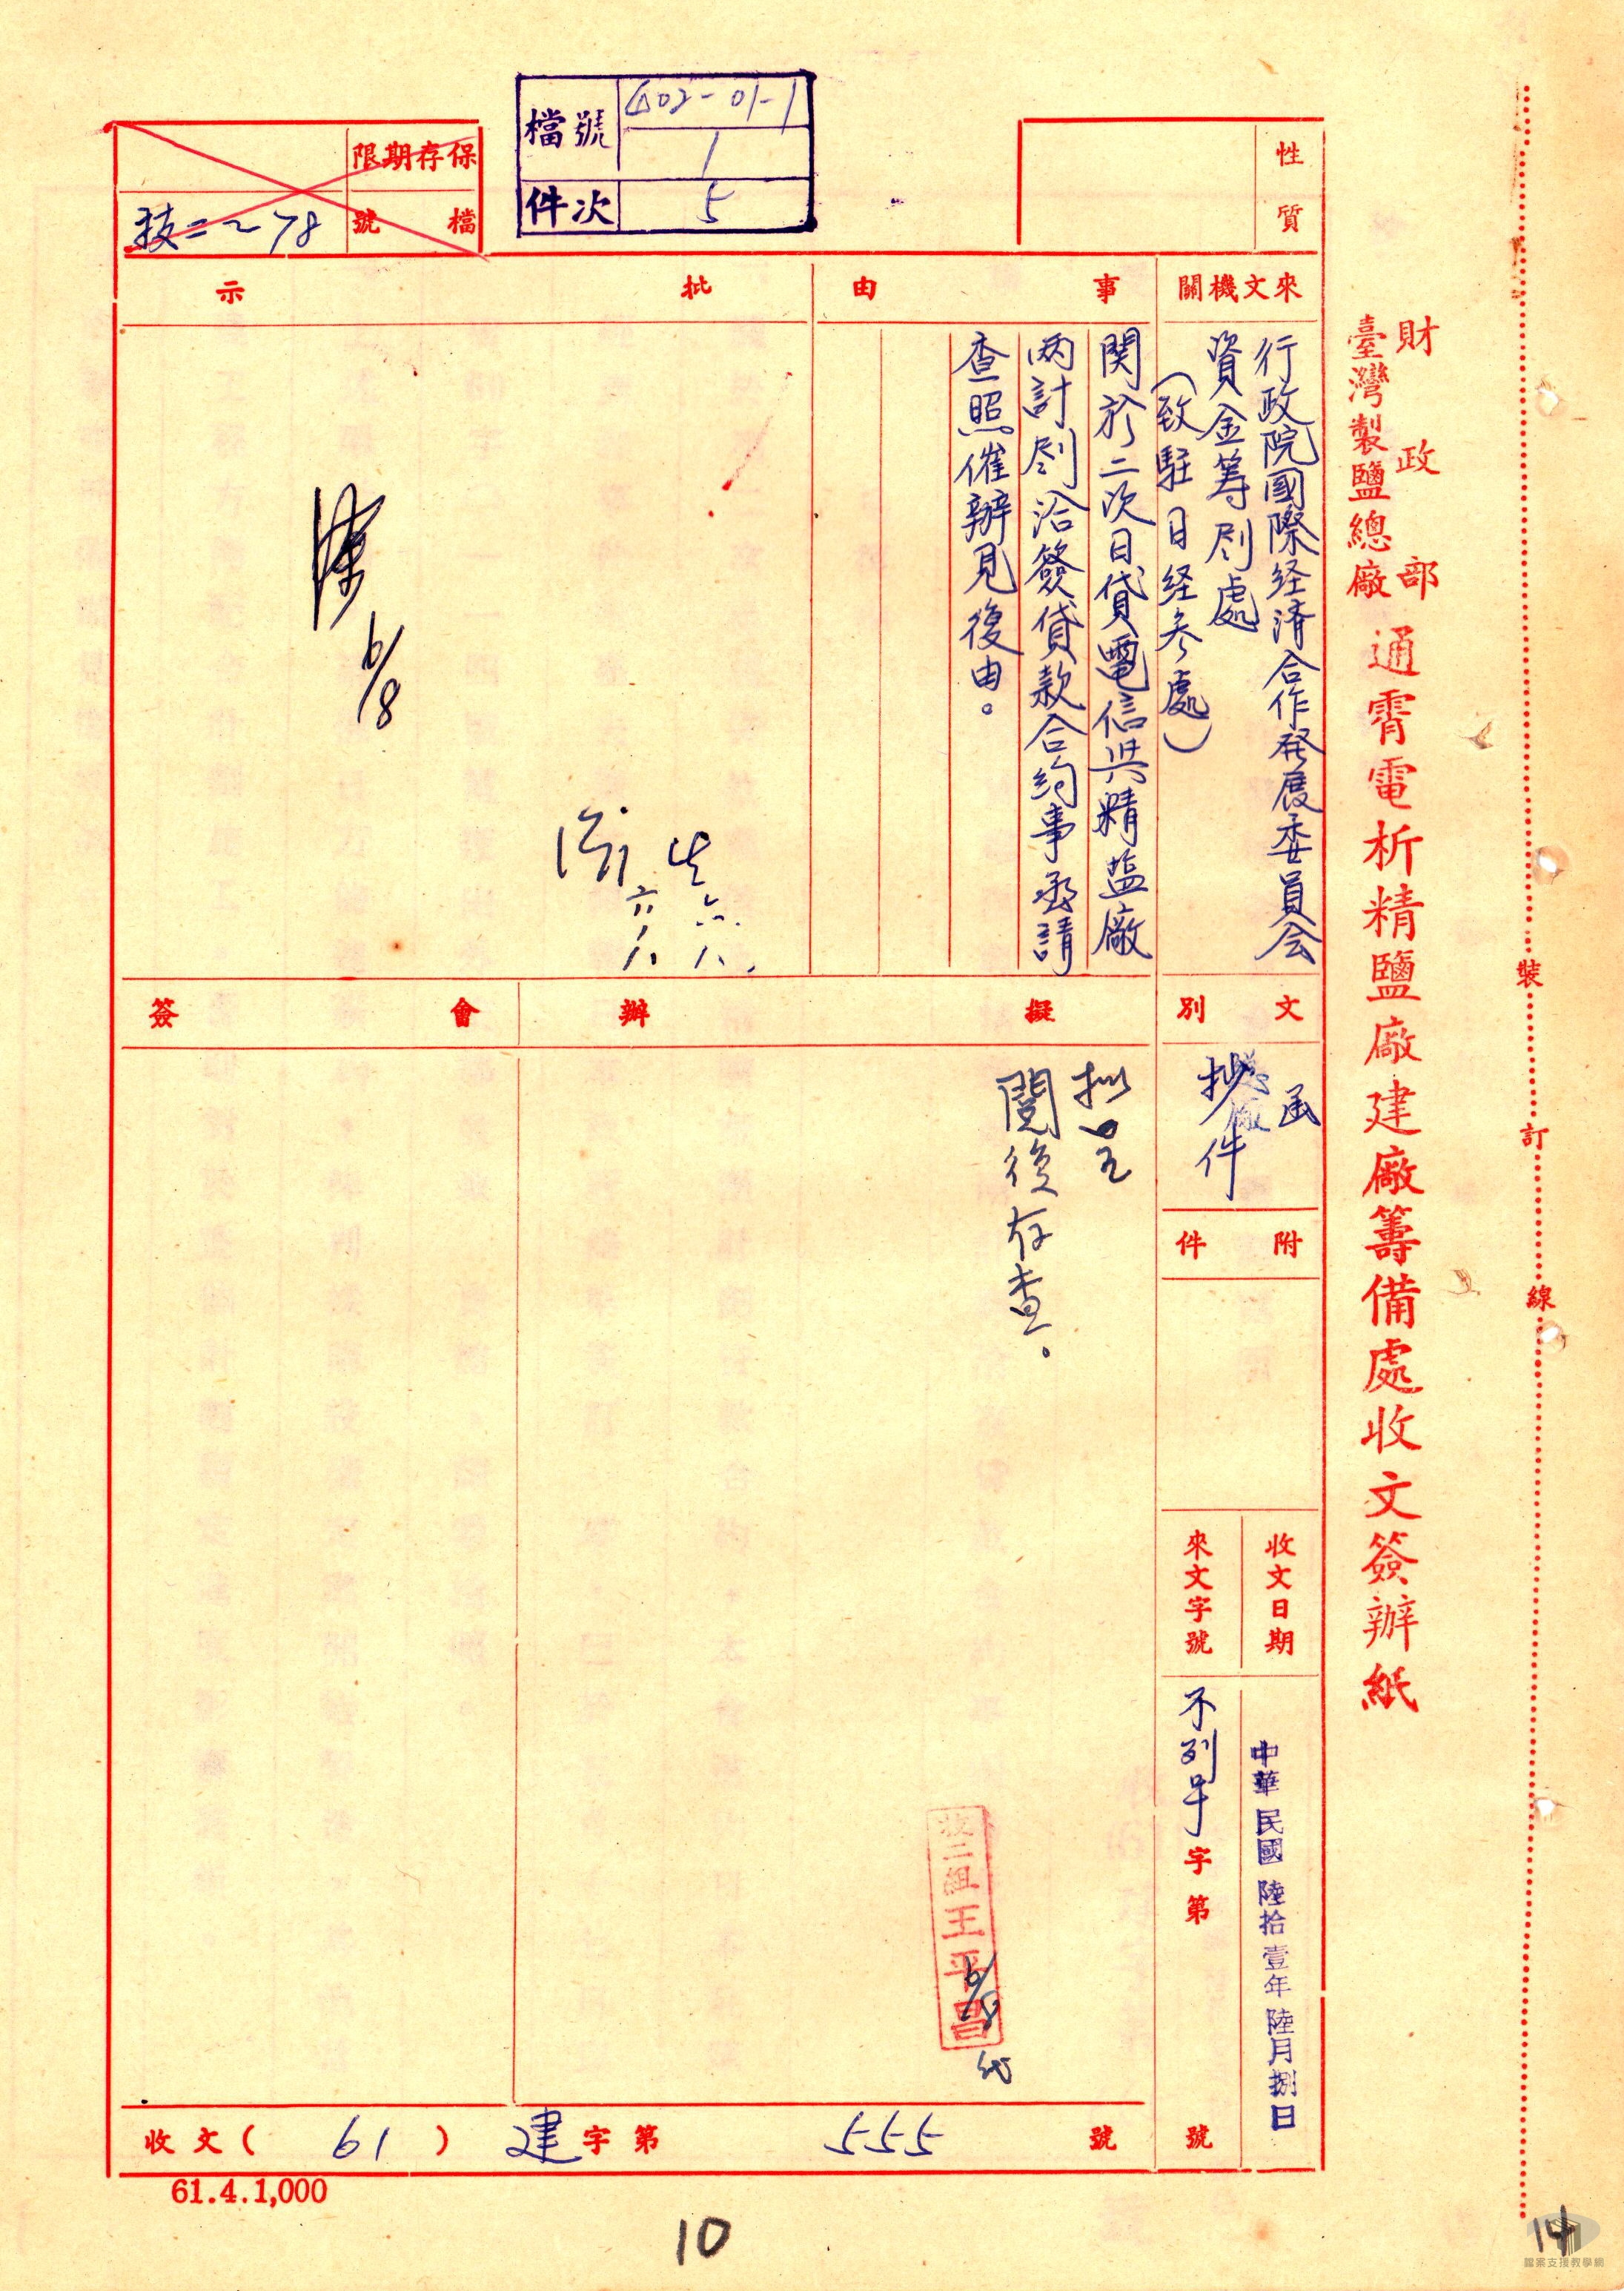 財政部
臺灣製鹽總廠
通霄電析精鹽廠建廠籌備處收文簽辦紙
裝
訂
線
性質
檔號
402-01-1
1
件次
5
保存期限
檔號
技二~78
來文機關
行政院國際経済合作発展委員会
資金筹劃處
(致駐日経参處)
事由
関於二次日貸電信與精盐廠
兩計劃洽簽貸款合約事函請
查照催辦見復由。
批示
陳
6/8
六/八
六/八
文別
函
抄件
附件
擬辦
拟呈
閱後存查。
會簽
收文日期
中華民國陸拾壹年陸月捌日
來文字號
不列号字第 號
技二組王平昌
6/8
代
收文( 61 ) 建字第 555 號
61.4.1,000
10
14
檔案支援教學網